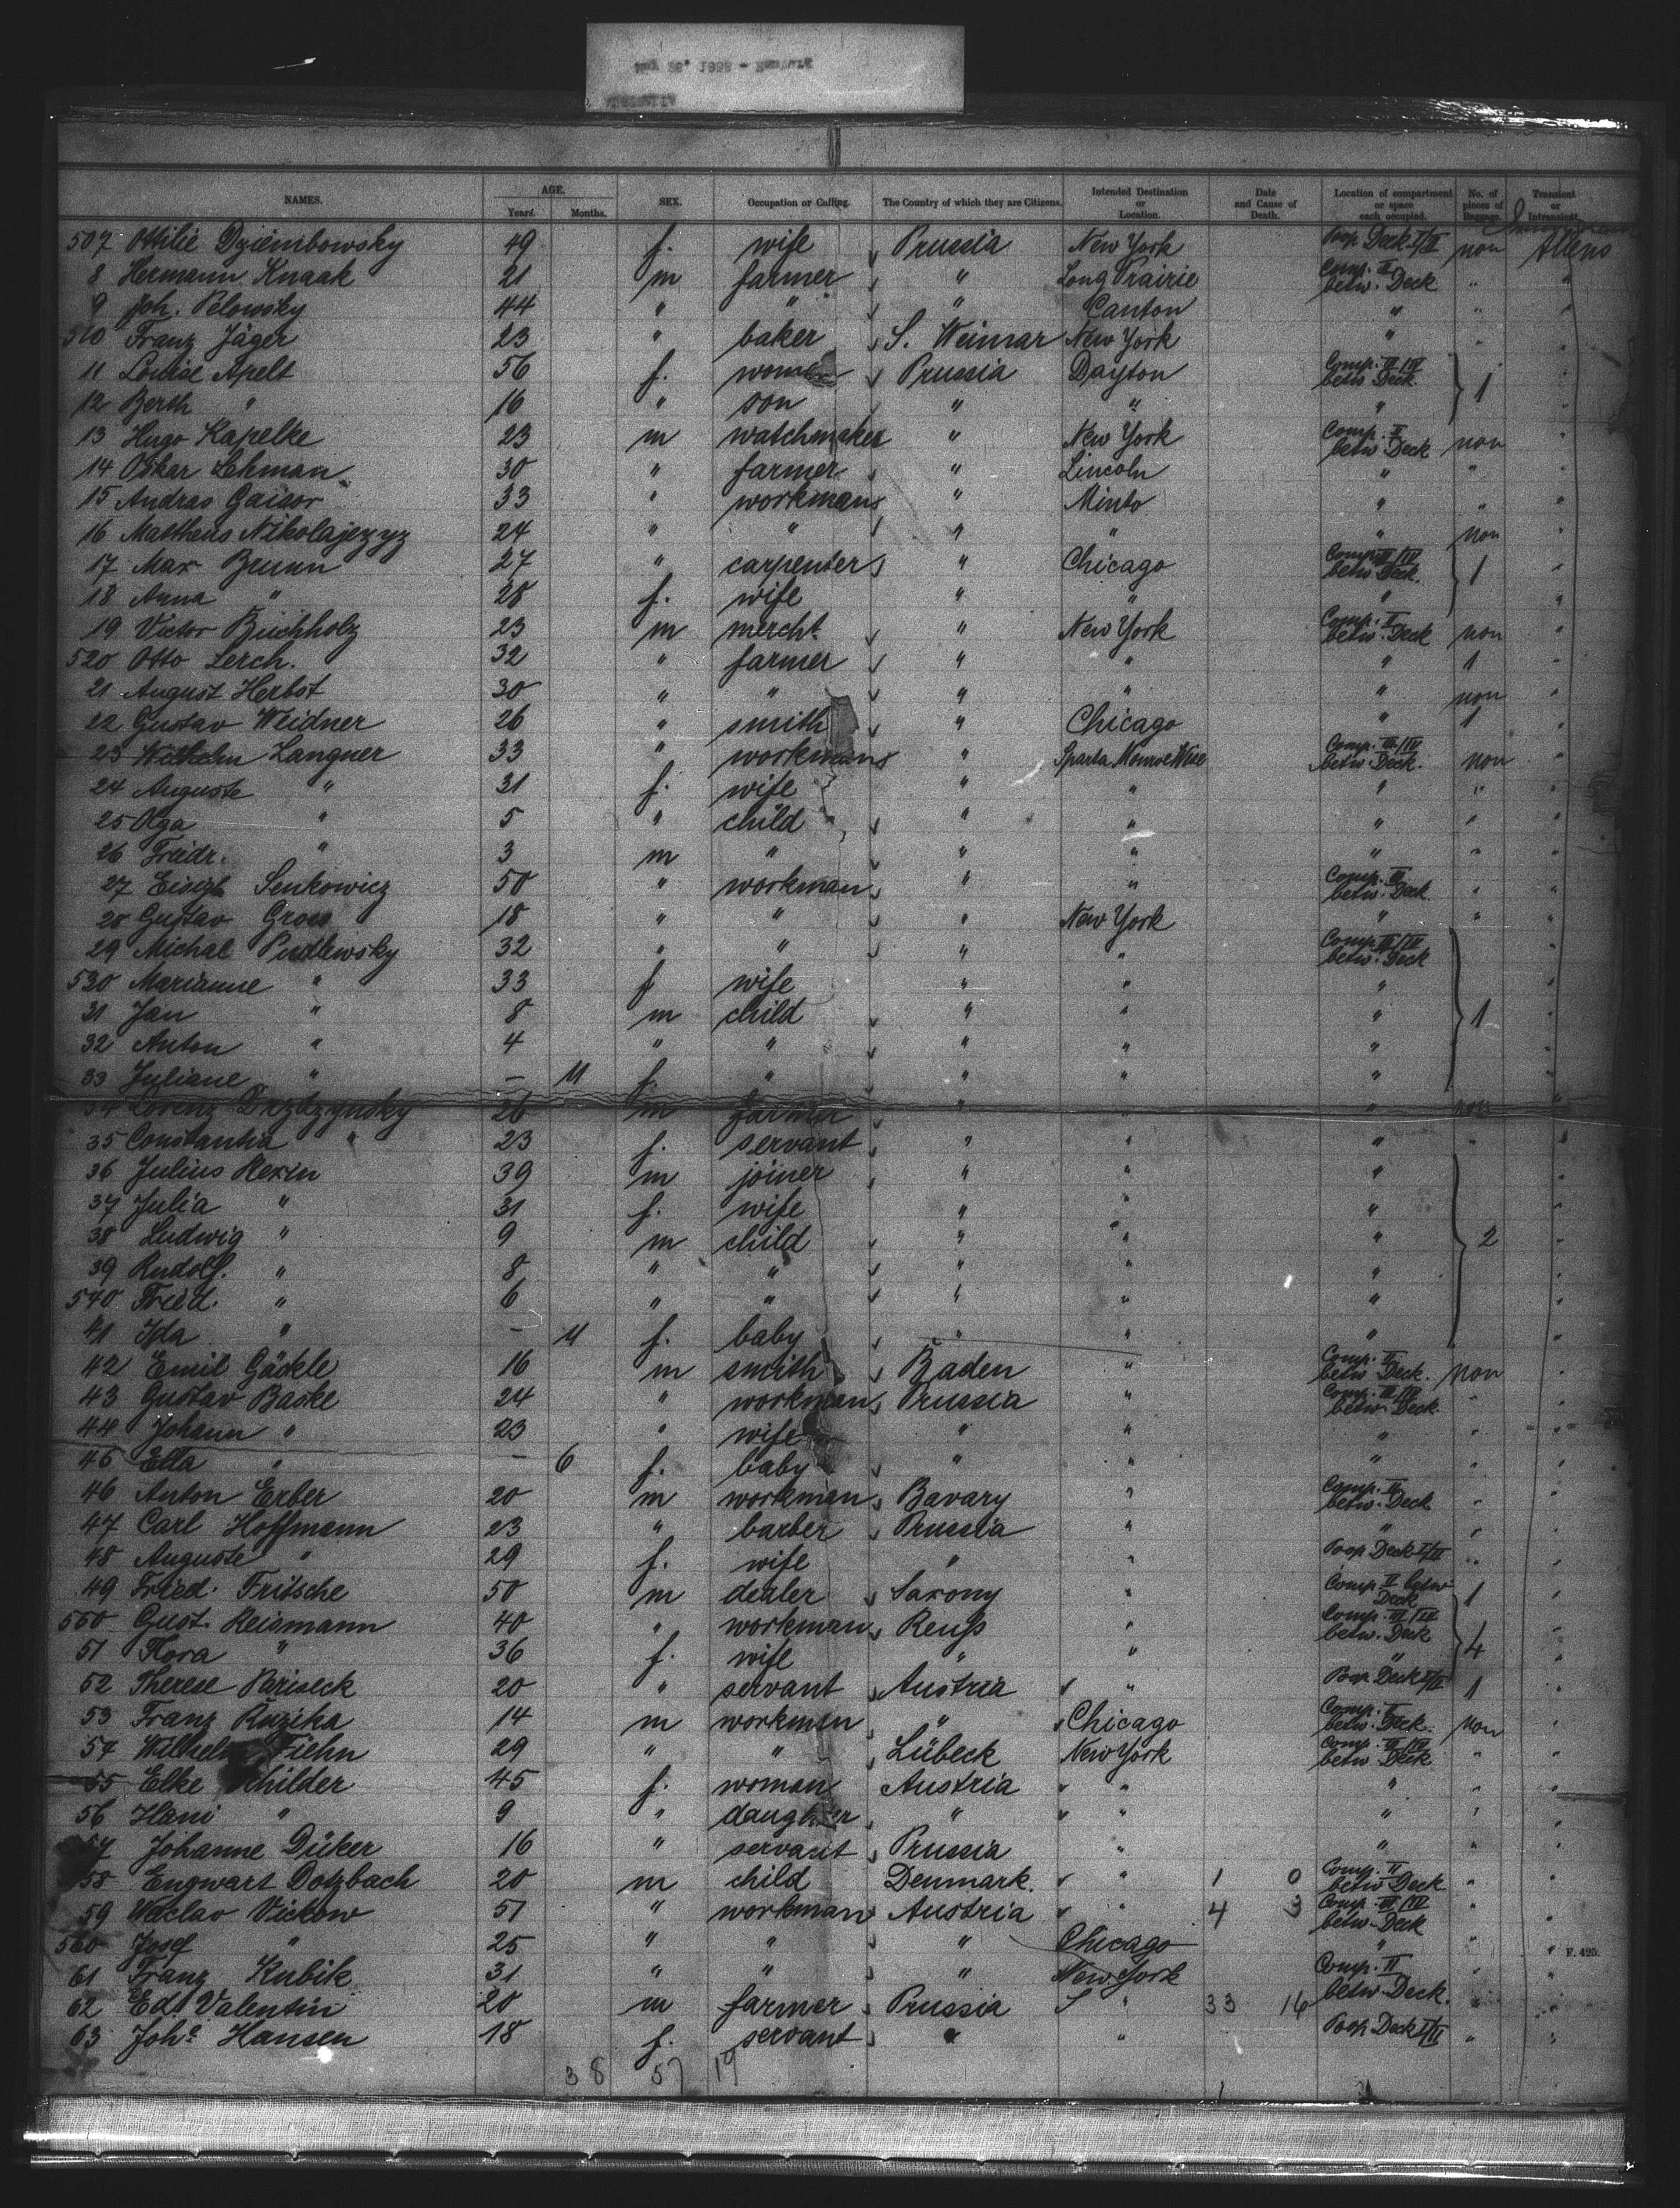 NAMES. AGE. Years. Months. SEX. Occupation or Calling. The Country of which they are Citizens. Intended Destination or Location. Date and Cause of Death. Location of compartment or space each occupied. No. of pieces of Baggage. Transient or Intransient.
507 Ottilie Dziembowsky 49 f. wife Prussia New York Poop Deck I/II non Allens
8 Hermann Knaak 21 m farmer " Long Prairie Comp. II betw. Deck " "
9 Joh. Pelowsky 44 " " " Canton " " "
510 Franz Jäger 23 " baker S. Weimar New York " " "
11 Louise Apelt 56 f. Prussia Dayton Comp. III/IV betw. Deck. } 1 "
12 Berth " 16 " son " " " "
13 Hugo Kapelke 23 m watchmaker " New York Comp. II betw. Deck non "
14 Oskar Lehman 30 " farmer " Lincoln " " "
15 Andras Gaisor 33 " workman " Minto " " "
16 Mattheus Nikolajezyz 24 " " " " " non "
17 Max Brunn 27 " carpenter " Chicago Comp. III/IV betw. Deck. } 1 "
18 Anna " 28 f. wife " " " "
19 Victor Buchholz 23 m mercht. " New York Comp. II betw. Deck non "
520 Otto Lerch. 32 " farmer " " " 1 "
21 August Herbst 30 " " " " " non "
22 Gustav Weidner 26 " smith " Chicago " 1 "
23 Wilhelm Langner 33 " workman " Sparta Monroe Wisc Comp. III/IV betw. Deck. non "
24 Auguste " 31 f. wife " " " " "
25 Olga " 5 " child " " " " "
26 Friedr. " 3 m " " " " " "
27 Senkowicz 50 " workman " " Comp. II betw. Deck. " "
28 Gustav Gross 18 " " " New York " " "
29 Michal Pudlewsky 32 " " " " Comp. III/IV betw. Deck "
530 Marianne " 33 f wife " " " "
31 Jan " 8 m child " " " } 1 "
32 Anton " 4 " " " " " "
33 Juliane " - 11 f. " " " " "
34 Lorenz 26 m farmer " " " non "
35 Constantia " 23 f. servant " " " " "
36 Julius Rexin 39 m joiner " " " "
37 Julia " 31 f. wife " " " "
38 Ludwig " 9 m child " " " } 2 "
39 Rudolf. " 8 " " " " " "
540 Fried. " 6 " " " " " "
41 Ida " - 11 f. baby " " " "
42 Emil Gäckle 16 m smith Baden " Comp. II betw. Deck. non "
43 Gustav Baske 24 " workman Prussia " Comp. III/IV betw. Deck. " "
44 Johann " 23 " wife " " " " "
45 Ella " - 6 f. baby " " " " "
46 Anton Erber 20 m workman Bavary " Comp. II betw. Deck " "
47 Carl Hoffmann 23 " barber Prussia " " " "
48 Auguste " 29 f. wife " " Poop Deck I/II " "
49 Fried. Fritsche 50 m dealer Saxony " Comp II betw Deck 1 "
550 Gust. Reismann 40 " workman Reuß " Comp. III/IV betw. Deck } 4 "
51 Flora " 36 f. wife " " " "
52 Therese Pariseck 20 " servant Austria " Poop Deck I/II 1 "
53 Franz Ruzika 14 m workman " Chicago Comp. II betw. Deck. non "
54 Wilhelm Fiehn 29 " " Lübeck New York Comp. III/IV betw. Deck " "
55 Elke Schilder 45 f. woman Austria " " " "
56 Hani " 9 " daughter " " " " "
57 Johanne Düker 16 " servant Prussia " " " "
58 Engwart Dotzbach 20 m child Denmark. " 1 0 Comp. II betw Deck " "
59 Waclav Vickow 51 " workman Austria " 4 3 Comp. III/IV betw. Deck " "
560 Josef " 25 " " " Chicago " " " F. 425.
61 Franz Kubik 31 " " " New York Comp. II betw. Deck. " "
62 Ed. Valentin 20 m farmer Prussia " 33 16 " "
63 Joh.e Hansen 18 f. servant " " Poop Deck I/II " "
38 57 19